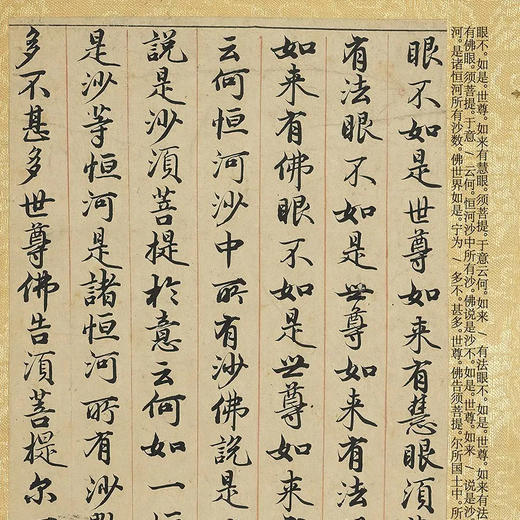 眼不。如是。世尊。如来有慧眼。须菩提。于意云何。如来 / 有法眼不。如是。世尊。如来有法
有佛眼。须菩提。于意 / 云何。恒河沙中所有沙。佛说是沙不。如是。世尊。如来 / 说是沙
河。是诸恒河所有沙数。佛世界如是。宁为 / 多不。甚多。世尊。佛告须菩提。尔所国土中。所
眼不如是世尊如来有慧眼須
有法眼不如是世尊如来有法
如来有佛眼不如是世尊如来
云何恒河沙中所有沙佛說是
說是沙須菩提於意云何如一恒
是沙等恒河是諸恒河所有沙數
多不甚多世尊佛告須菩提尔